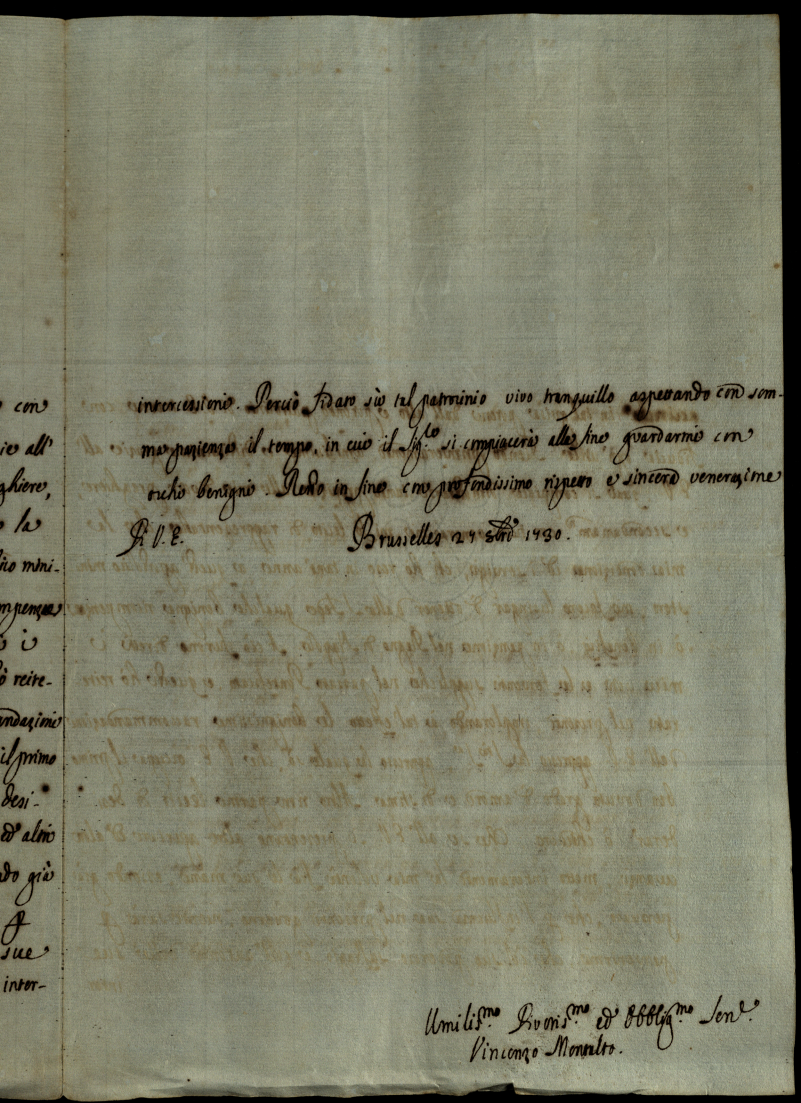 con
ie all'
ghiere,
la
mini-
mpenza
è
ò reite-
endazioni
il primo
desi-
ed altri
ndo già
sue
inter-
intercessione. Perciò fidato sù tal patrocinio vivo tranquillo aspettando con som-
ma pazienza il tempo, in cui il Sig.re si compiacerà alla fine guardarmi con
occhio benigno. Resto in fine con profondissimo rispetto e sincera venerazione
Di V. E. Brusselles 27 8bre 1730.
Umilis.mo Divotis.mo ed Obblig.mo Serv.e
Vincenzo Montalto.